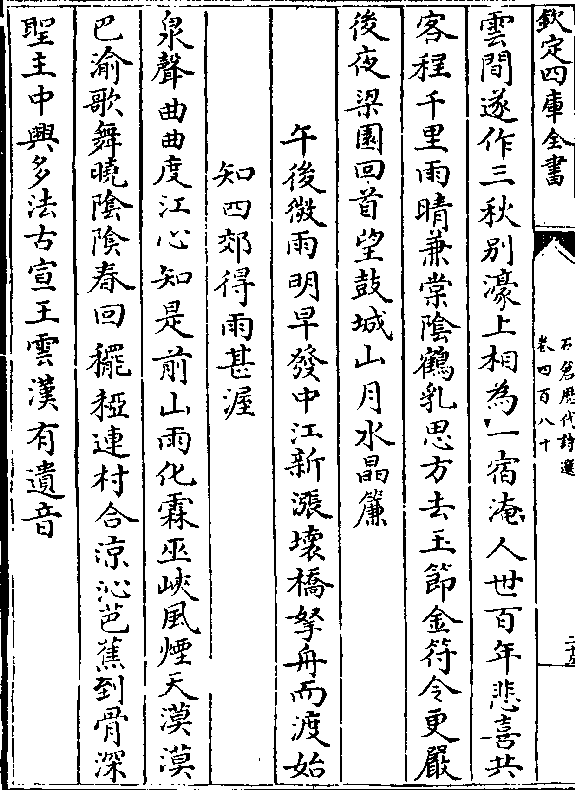 欽定四庫全書
石倉歷代詩選
卷四百八十
雲間遂作三秋别濠上相為一宿淹人世百年悲喜共
客程千里雨晴兼棠陰鶴乳思方去玉節金符令更嚴
後夜梁園回首望鼓城山月水晶簾
午後微雨明早發中江新漲壞橋拏舟而渡始
知四郊得雨甚渥
泉聲曲曲度江心知是前山雨化霖巫峽風煙天漠漠
巴渝歌舞曉陰陰春回䆉稏連村合涼沁芭蕉到骨深
聖主中興多法古宣王雲漢有遺音